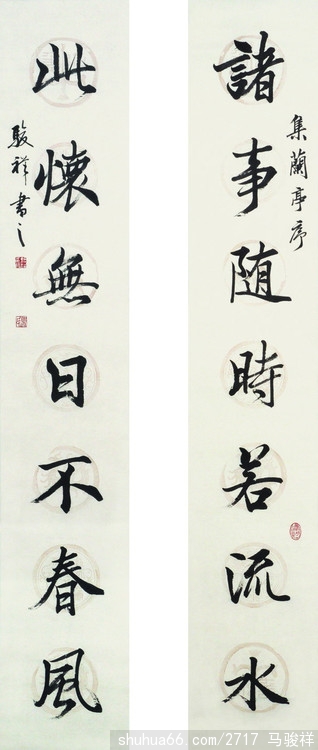 諸事随時若流水
集蘭亭序
此懷無日不春風
駿祥書之
shuhua66.com/2717 马骏祥